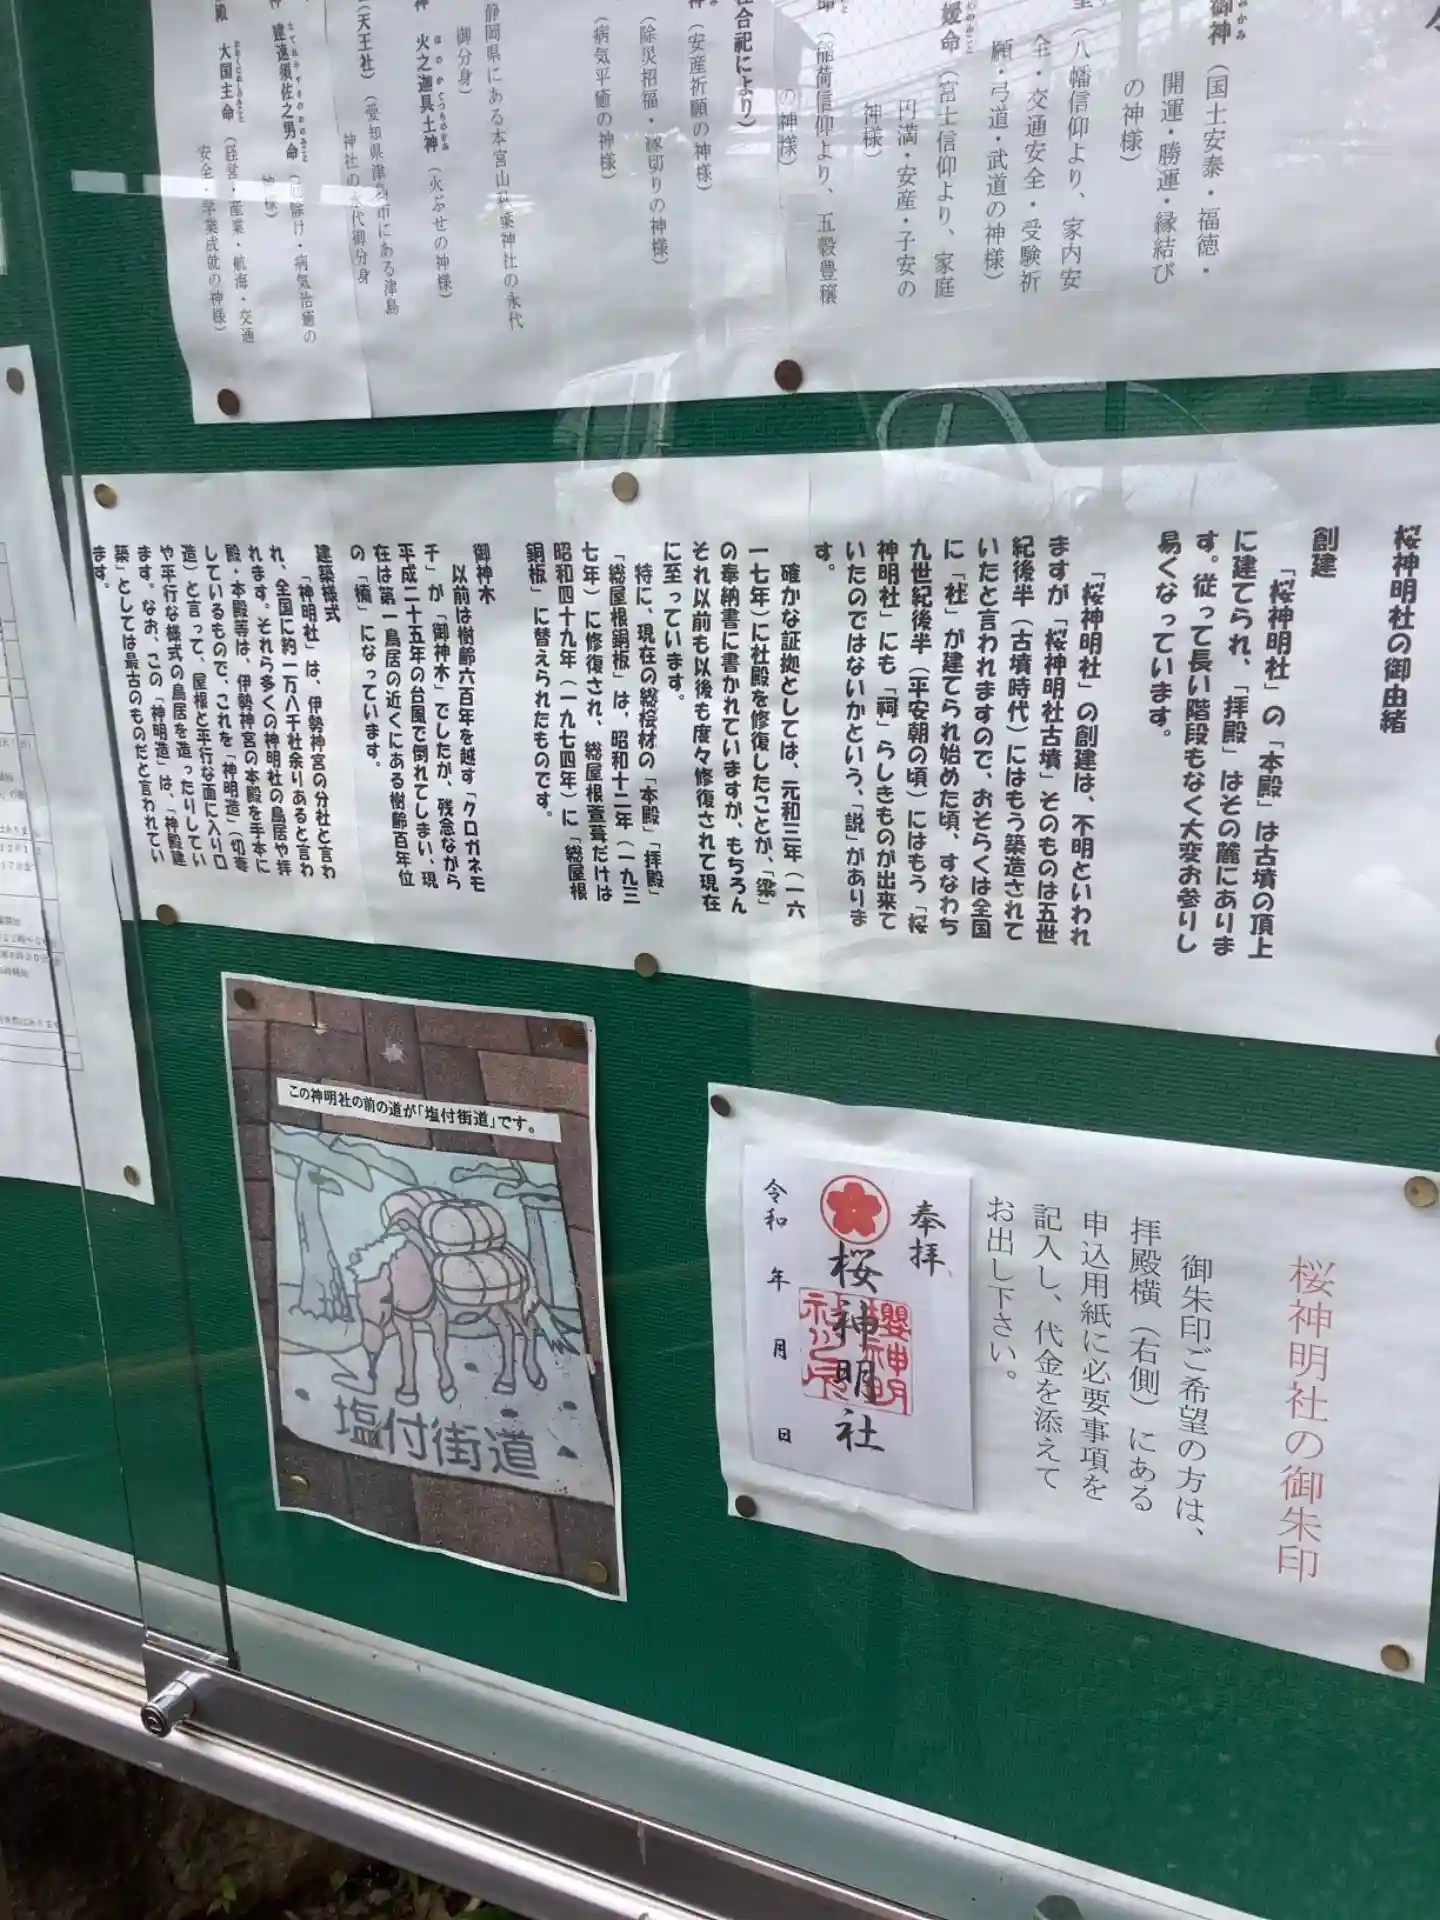 御神
みかみ
（国土安泰・福徳・
開運・勝運・縁結び
の神様）
（八幡信仰より、家内安
全・交通安全・受験祈
願・弓道・武道の神様）
媛命
（富士信仰より、家庭
円満・安産・子安の
神様）
命
（稲荷信仰より、五穀豊穣
の神様）
社合祀により）
神
（安産祈願の神様）
（除災招福・縁切りの神様）
（病気平癒の神様）
静岡県にある本宮山秋葉神社の永代
御分身）
神 火之迦具土神
（火ぶせの神様）
（天王社）
（愛知県津島市にある津島
神社の永代御分身
神 建速須佐之男命
（厄除け・病気治癒の
神様）
殿 大国主命
（経営・産業・航海・交通
安全・学業成就の神様）
桜神明社の御由緒
創建
「桜神明社」の「本殿」は古墳の頂上
に建てられ、「拝殿」はその麓にありま
す。従って長い階段もなく大変お参りし
易くなっています。
「桜神明社」の創建は、不明といわれ
ますが「桜神明社古墳」そのものは五世
紀後半（古墳時代）にはもう築造されて
いたと言われますので、おそらくは全国
に「社」が建てられ始めた頃、すなわち
九世紀後半（平安朝の頃）にはもう「桜
神明社」にも「祠」らしきものが出来て
いたのではないかという、「説」がありま
す。
確かな証拠としては、元和三年（一六
一七年）に社殿を修復したことが、「梁」
の奉納書に書かれていますが、もちろん
それ以前も以後も度々修復されて現在
に至っています。
特に、現在の総桧材の「本殿」「拝殿」
「総屋根銅板」は、昭和十二年（一九三
七年）に修復され、総屋根萱葺だけは
昭和四十九年（一九七四年）に「総屋根
銅板」に替えられたものです。
御神木
以前は樹齢六百年を越す「クロガネモ
チ」が「御神木」でしたが、残念ながら
平成二十五年の台風で倒れてしまい、現
在は第一鳥居の近くにある樹齢百年位
の「楠」になっています。
建築様式
「神明社」は、伊勢神宮の分社と言わ
れ、全国に約一万八千社余りあると言わ
れます。それら多くの神明社の鳥居や拝
殿・本殿等は、伊勢神宮の本殿を手本に
しているもので、これを「神明造」（切妻
造）と言って、屋根と平行な面に入り口
や平行な様式の鳥居を造ったりしてい
ます。なお、この「神明造」は、「神殿建
築」としては最古のものだと言われてい
ます。
この神明社の前の道が「塩付街道」です。
塩付街道
桜神明社の御朱印
御朱印ご希望の方は、
拝殿横（右側）にある
申込用紙に必要事項を
記入し、代金を添えて
お出し下さい。
奉拝
桜神明社
櫻神明
社之印
令和 年 月 日